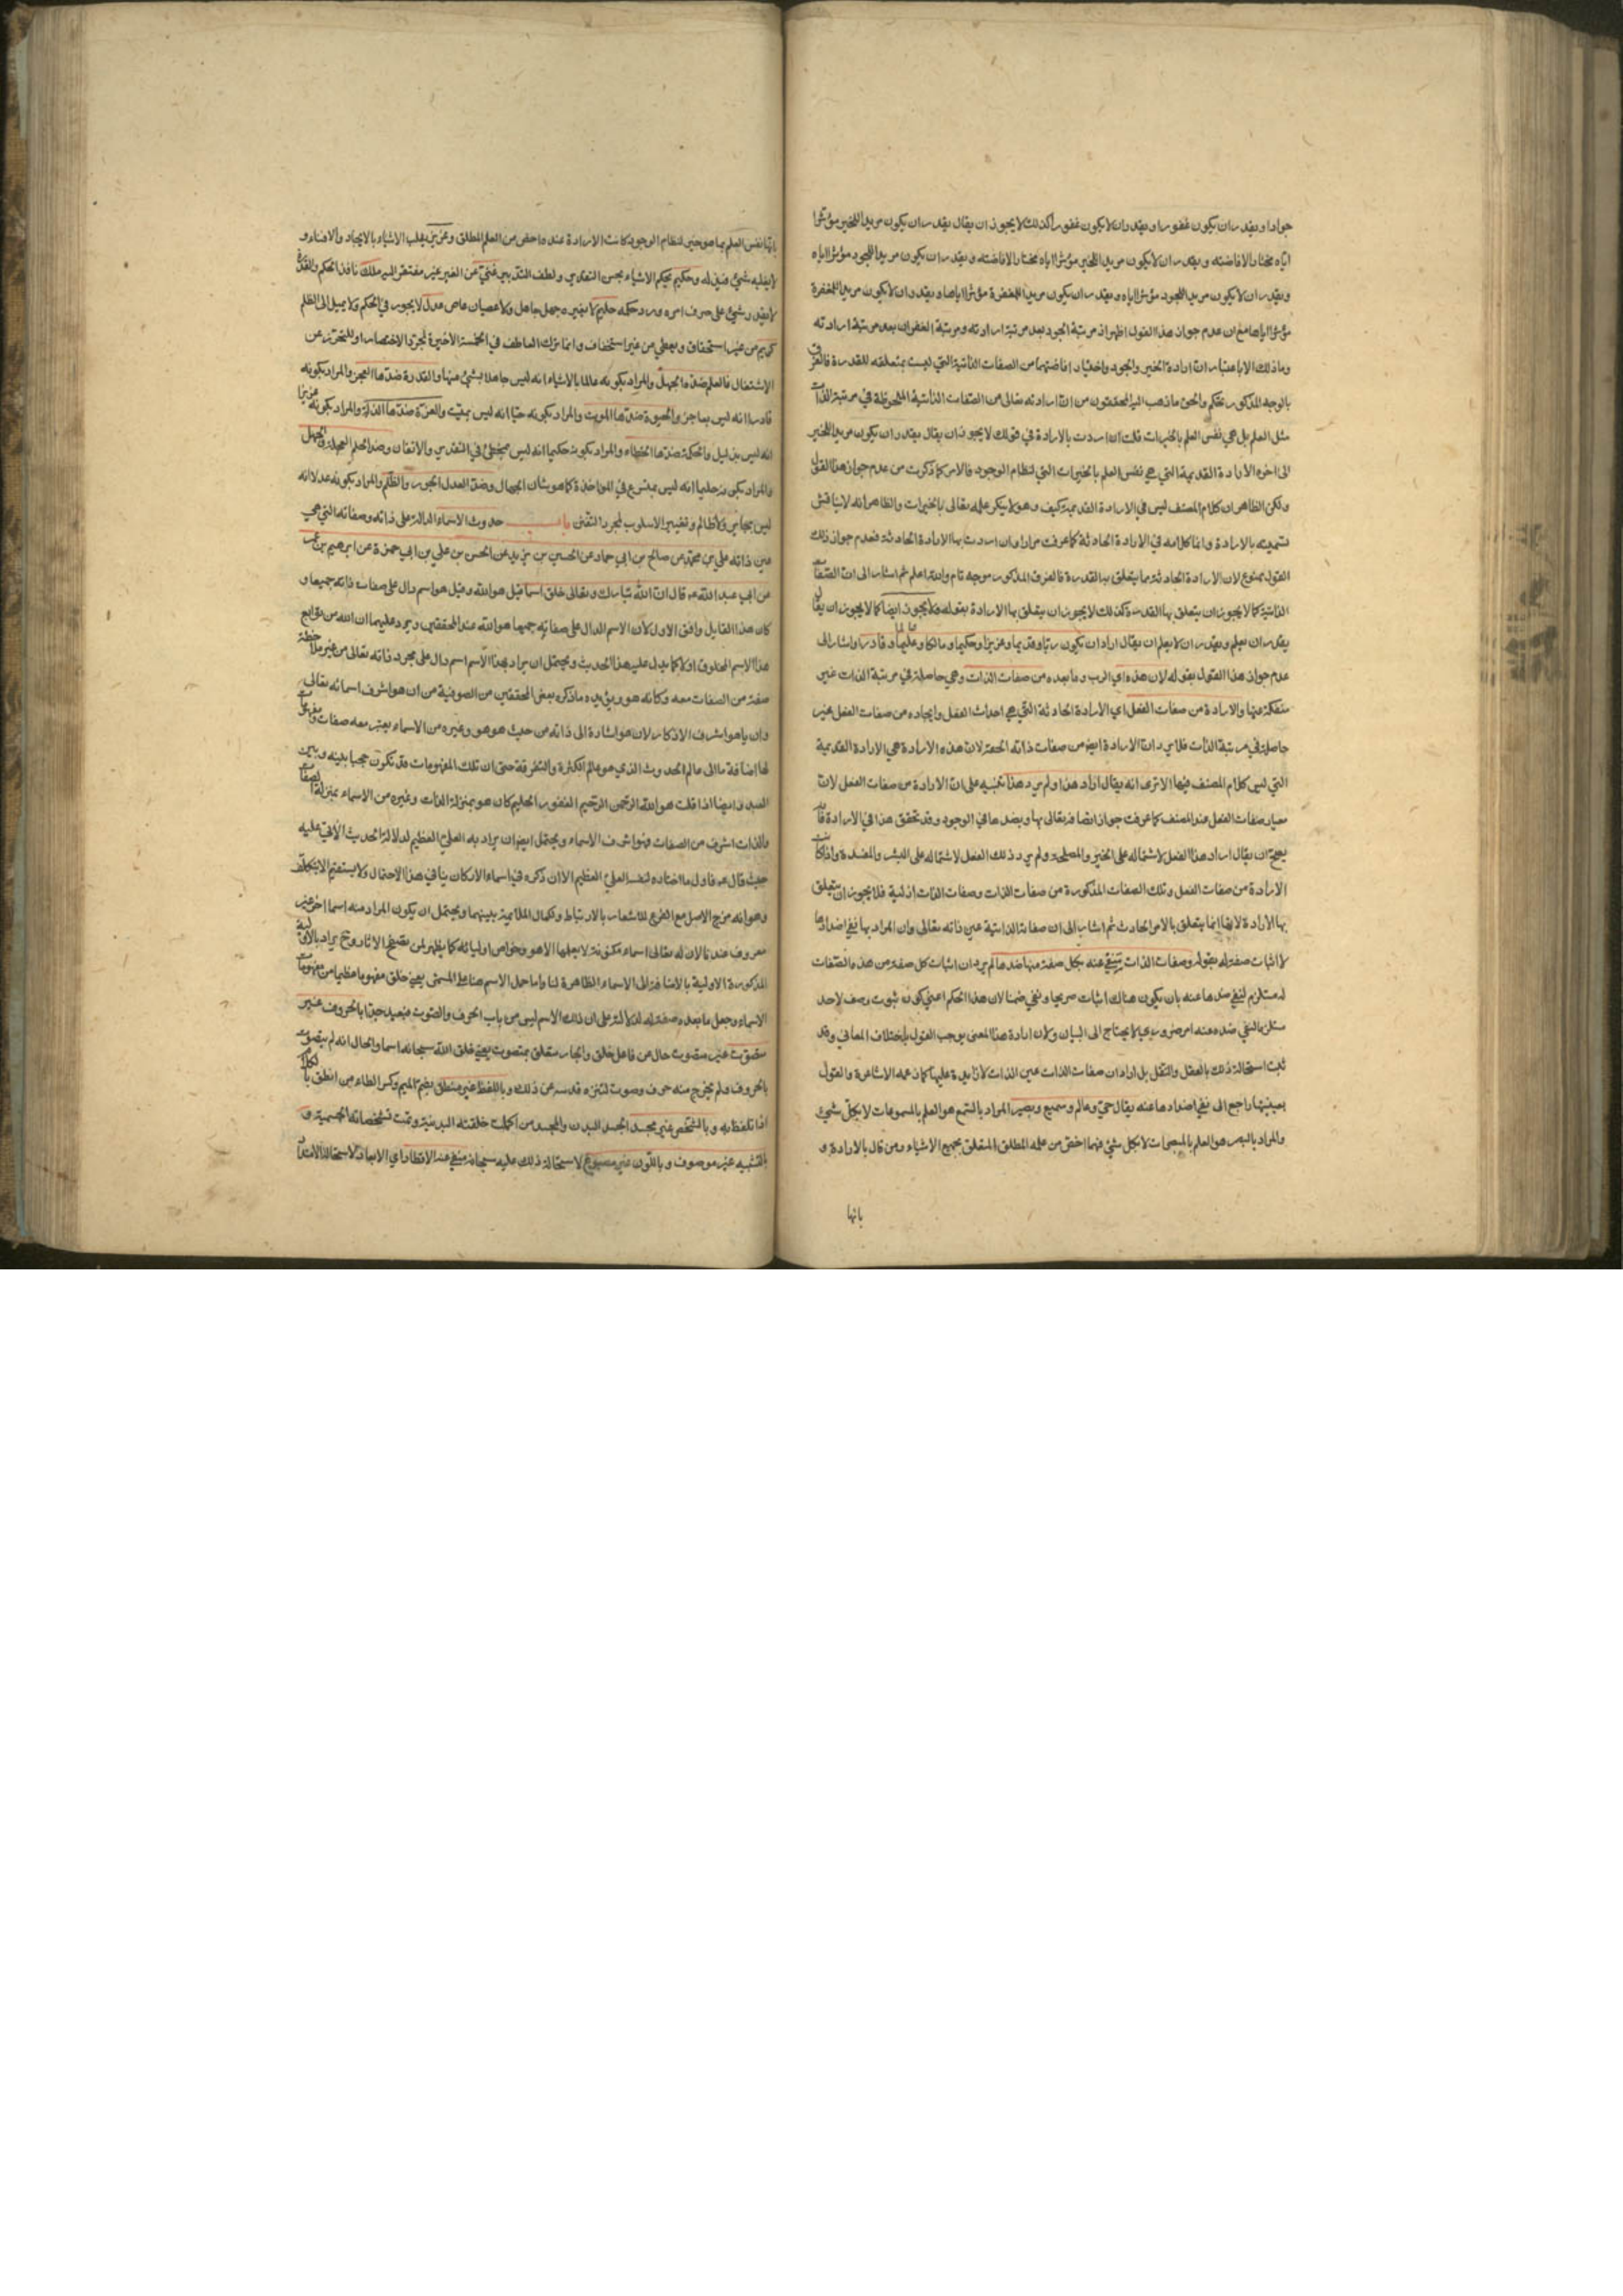 جوادا ويقدر ان يكون غفورا ويقدر ان لا يكون غفورا كذلك لا يجوز ان يقال يقدر ان يكون مريدا للخير مؤثرا
اياه مختارا لافاضته ويقدر ان لا يكون مريدا للخير مؤثرا اياه مختارا لافاضته ويقدر ان يكون مريدا للجود مؤثرا اياه
ويقدر ان لا يكون مريدا للجود مؤثرا اياه ويقدر ان يكون مريدا للمغفرة مؤثرا اياها ويقدر ان لا يكون مريدا للمغفرة
مؤثرا اياها مع ان عدم جواز هذا القول اظهر اذ مرتبة الجود بعد مرتبة ارادته ومرتبة الغفران بعد مرتبة ارادته
وما ذلك الا باعتبار ان ارادة الخير والجود واختيار افاضتهما من الصفات الذاتية التي ليست بمتعلقه للقدرة فالفرق
بالوجه المذكور تحكم والحق ما ذهب اليه المحققون من ان ارادته تعالى من الصفات الذاتية الملحوظة في مرتبة الذات
مثل العلم بل هي نفس العلم بالخيرات قلت ان اردت بالارادة في قولك لا يجوز ان يقال يقدر ان يكون مريدا للخير
الى اخره الارادة القديمة التي هي نفس العلم بالخيرات التي لنظام الوجود فالامر كما ذكرت من عدم جواز هذا القول
ولكن الظاهر ان كلام المصنف ليس في الارادة القديمة كيف وهو لا ينكر علمه تعالى بالخيرات والظاهر انه لا يناقش
تسميته بالارادة وانما كلامه في الارادة الحادثة كما عرفت مرارا وان اردت بها الارادة الحادثة فعدم جواز ذلك
القول ممنوع لان الارادة الحادثة مما يتعلق بها القدرة فالفرق المذكور موجه تام والله اعلم ثم اشار الى ان الصفات
الذاتية كما لا يجوز ان يتعلق بها القدرة كذلك لا يجوز ان يتعلق بها الارادة بقوله ولا يجوز ايضا كما لا يجوز ان يقال
يقدر ان يعلم ويقدر ان لا يعلم ان يقال اراد ان يكون ربا وقديما وعزيزا وحكيما ومالكا وعالما وقادرا واشار الى
عدم جواز هذا القول بقوله لان هذه اي الرب وما بعده من صفات الذات وهي حاصلة في مرتبة الذات غير
منفكة عنها والارادة من صفات الفعل اي الارادة الحادثة التي هي احداث الفعل وايجاده من صفات الفعل غير
حاصلة في مرتبة الذات فلا يرد ان الارادة ايضا من صفات ذاته الحقة لان هذه الارادة هي الارادة القديمة
التي ليس كلام المصنف فيها الا ترى انه يقال اراد هذا ولم يرد هذا تنبيه على ان الارادة من صفات الفعل لان
معيار صفات الفعل عند المصنف كما عرفت جواز اتصافه تعالى بها وبضدها في الوجود وقد تحقق هذا في الارادة فانه
يصح ان يقال اراد هذا الفعل لاشتماله على الخير والمصلحة ولم يرد ذلك الفعل لاشتماله على الشر والمفسدة واذا كانت
الارادة من صفات الفعل وتلك الصفات المذكورة من صفات الذات وصفات الذات ازلية فلا يجوز ان يتعلق
بها الارادة لانها انما يتعلق بالامر الحادث ثم اشار الى ان صفاته الذاتية عين ذاته تعالى وان المراد بها نفي اضدادها
لا اثبات صفة له بقوله وصفات الذات ينتفي عنه بكل صفة منها ضدها لم يرد ان اثبات كل صفة من هذه الصفات
له مستلزم لنفي ضدها عنه بان يكون هناك اثبات صريحا ونفي ضمنا لان هذا الحكم اعني كون ثبوت وصف لاحد
مستلزما لنفي ضده عنه امر ضروري بديهي لا يحتاج الى البيان ولان ارادة هذا المعنى يوجب القول باختلاف المعاني وقد
ثبت استحالة ذلك بالعقل والنقل بل اراد ان صفات الذات عين الذات لا زائدة عليها كما زعمه الاشاعرة والقول
بعينيتها راجع الى نفي اضدادها عنه يقال حي وعالم وسميع وبصير المراد بالسمع هو العلم بالمسموعات لا بكل شيء
والمراد بالبصر هو العلم بالمبصرات لا بكل شيء فهما اخص من علمه المطلق المتعلق بجميع الاشياء ومن قال بالارادة و
بانها
بانها نفس العلم بما هو خير لنظام الوجود كانت الارادة عنده اخص من العلم المطلق وعزيز يغلب الاشياء بالايجاد والافناء و
لا يغلبه شيء فيذله وحكيم يحكم الاشياء بحسن التقدير ولطف التدبير غني عن الغير غير مفتقر اليه ملك نافذ الحكم والقدرة
لا يقدر شيء على صرف امره ورد حكمه حليم لا يغيره جهل جاهل ولا عصيان عاص عدل لا يجور في الحكم ولا يميل الى الظلم
كريم من غير استحقاق ويعطي من غير استخفاف وانما ترك العاطف في الخمسة الاخيرة لمجرد الاختصار او للتحرز عن
الاشتغال فالعلم ضده الجهل والمراد بكونه عالما بالاشياء انه ليس جاهلا بشيء منها والقدرة ضدها العجز والمراد بكونه
قادرا انه ليس بعاجز والحيوة ضدها الموت والمراد بكونه حيا انه ليس بميت والعزة ضدها الذلة والمراد بكونه عزيزا
انه ليس بذليل والحكمة ضدها الخطاء والمراد بكونه حكيما انه ليس مخطئ في التقدير والاتقان وضد الحلم العجلة والجهل
والمراد بكونه حليما انه ليس بمتسرع في المواخذة كما هو شان الجهال وضد العدل الجور والظلم والمراد بكونه عدلا انه
ليس بجاير ولا ظالم وتغيير الاسلوب لمجرد التفنن باب حدوث الاسماء الدالة على ذاته وصفاته التي هي
عين ذاته علي بن محمد عن صالح بن ابي حماد عن الحسين بن يزيد عن الحسن بن علي بن ابي حمزة عن ابرهيم بن عمر
عن ابي عبد الله ع قال ان الله تبارك وتعالى خلق اسما قيل هو الله وقيل هو اسم دال على صفات ذاته جميعا و
كان هذا القايل وافق الاول لان الاسم الدال على صفاته جميعها هو الله عند المحققين ويرد عليهما ان الله من توابع
هذا الاسم المخلوق اولا كما يدل عليه هذا الحديث ويحتمل ان يراد بهذا الاسم اسم دال على مجرد ذاته تعالى من غير ملاحظة
صفة من الصفات معه وكانه هو ويؤيده ما ذكره بعض المحققين من الصوفية من ان هو اشرف اسمائه تعالى
وان يا هو اشرف الاذكار لان هو اشارة الى ذاته من حيث هو هو وغيره من الاسماء يعتبر معه صفات ومفهومات
لها اضافة ما الى عالم الحدوث الذي هو عالم الكثرة والتفرقة حتى ان تلك المفهومات قد تكون حجبا بينه وبين
العبد وايضا اذا قلت هو الله الرحمن الرحيم الغفور الحليم كان هو بمنزلة الذات وغيره من الاسماء بمنزلة الصفات
والذات اشرف من الصفات فهو اشرف الاسماء ويحتمل ايضا ان يراد به العلي العظيم لدلالة الحديث الاتي عليه
حيث قال ع فاول ما اختاره لنفسه العلي العظيم الا ان ذكره في اسماء الاركان ينافي هذا الاحتمال ولا يستقيم الا بتكلف
وهو انه مزج الاصل مع الفرع للاشعار بالارتباط وكمال الملايمة بينهما ويحتمل ان يكون المراد منه اسما اخر غير
معروف عندنا لان له تعالى اسماء مكنونة لا يعلمها الا هو وخواص اوليائه كما يظهر لمن تصفح الاثار وح يراد بالاولية
المذكورة الاولية بالاضافة الى الاسماء الظاهرة لنا واما حمل الاسم هنا على المسمى يعني خلق مفهوما عظيما من مفهومات
الاسماء وجعل ما بعده صفة له للدلالة على ان ذلك الاسم ليس من باب الحرف والصوت فبعيد جدا بالحروف غير
متصوت غير متصوت حال من فاعل خلق والجار متعلق بمتصوت يعني خلق الله سبحانه اسما والحال انه لم يتصوت
بالحروف ولم يخرج منه حرف وصوت لتنزه قدسه عن ذلك وباللفظ غير منطق بضم الميم وكسر الطاء من انطق بالكلام
اذا تلفظ به وبالشخص غير مجسد الجسد البدن والمجسد من اكملت خلقته البدنية وتمت تشخصاته الجسمية و
بالتشبيه غير موصوف وباللون غير مصبوغ لاستحالة ذلك عليه سبحانه منفي عنه الاقطار اي الابعاد لاستحالة